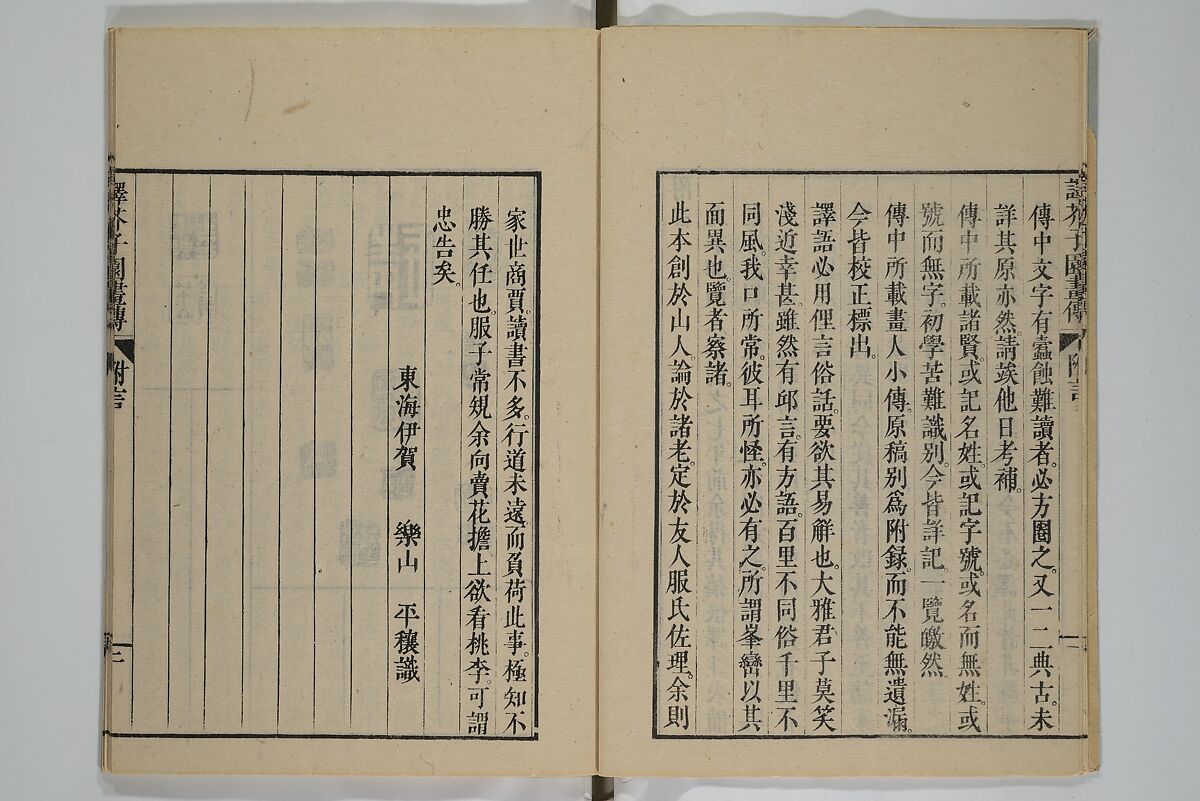 傳中文字有蠧蝕難讀者。必方圈之。又一二典古。未
詳其原亦然。請竢他日考補。
傳中所載諸賢。或記名姓。或記字號。或名而無姓。或
號而無字。初學苦難識別。今皆詳記。一覽皦然。
傳中所載畫人小傳。原稿別爲附錄。而不能無遺漏。
今皆校正標出。
譯語必用俚言俗話。要欲其易解也。大雅君子莫笑
淺近幸甚。雖然有邱言。有方語。百里不同俗千里不
同風。我口所常。彼耳所怪。亦必有之。所謂峯巒以其
面異也。覽者察諸。
此本創於山人。論於諸老。定於友人服氏佐理。余則
家世商賈。讀書不多。行道未遠。而負荷此事。極知不
勝其任也。服子常規余向賣花擔上欲看桃李。可謂
忠告矣。
東海伊賀 樂山 平穰識
譯芥子園畫傳 附言 二